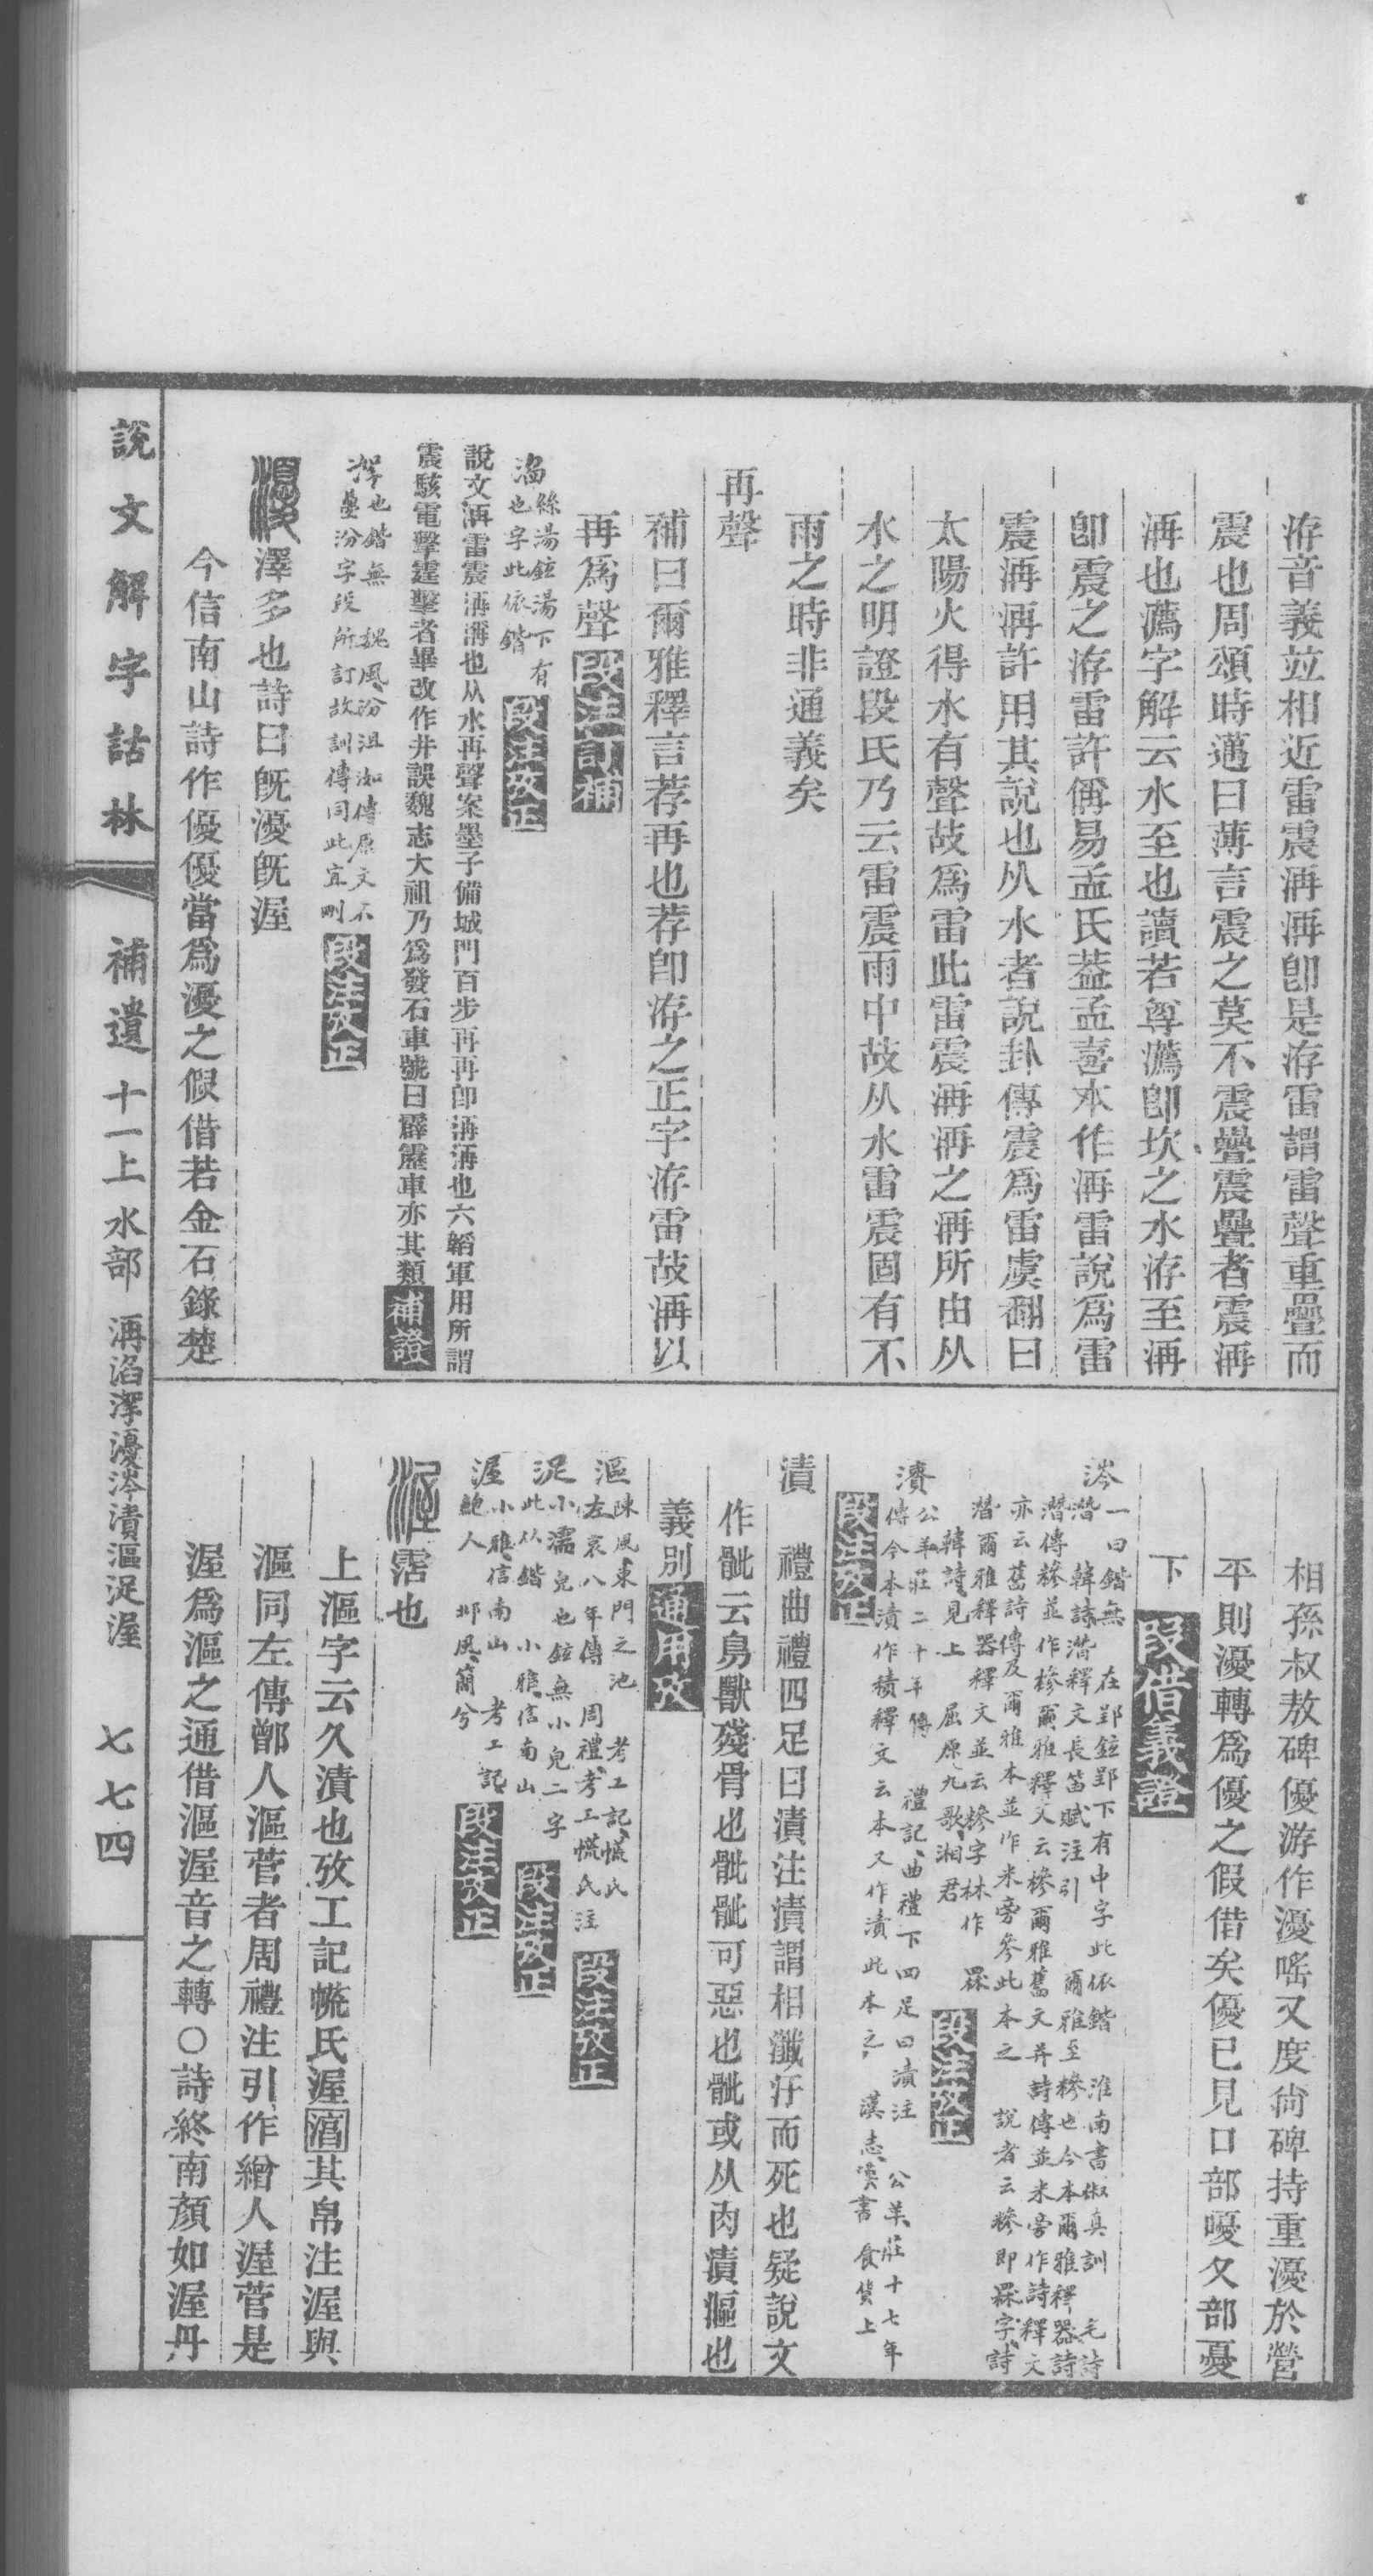 洊音義竝相近雷震洅洅卽是洊雷謂雷聲重疊而
震也周頌時邁曰薄言震之莫不震疊震疊者震洅
洅也瀳字解云水至也讀若尊瀳卽坎之水洊至洅
卽震之洊雷許偁易孟氏葢孟喜本作洅雷說爲雷
震洅洅許用其說也从水者說卦傳震爲雷虞翻曰
太陽火得水有聲故爲雷此雷震洅洅之洅所由从
水之明證段氏乃云雷震雨中故从水雷震固有不
雨之時非通義矣
再聲
補曰爾雅釋言荐再也荐卽洊之正字洊雷故洅以
再爲聲段注訂補
淊 絲湯鉉湯下有
也字此依鍇 段注攷正
說文洅雷震洅洅也从水再聲案墨子備城門百步再再卽洅洅也六韜軍用所謂
震駭電擊霆擊者畢改作井誤魏志大祖乃爲發石車號曰霹靂車亦其類補證
澤 也鍇無 魏風汾沮洳傳原文不
疊汾字段所訂故訓傳同此宜刪 段注攷正
瀀澤多也詩曰旣瀀旣渥
今信南山詩作優優當爲瀀之假借若金石錄楚
相孫叔敖碑優游作瀀㗛又度尙碑持重瀀於營
平則瀀轉爲優之假借矣優已見口部嚘夊部憂
下 段借義證
涔 一曰鍇無 在郢鉉郢下有中字此依鍇 淮南書俶真訓 毛詩
潛 韓詩潛釋文長笛賦注引 爾雅至槮也今本爾雅釋器詩
潛傳糝並作槮爾雅釋文云槮爾雅舊文并詩傳並米旁作詩釋文
亦云舊詩傳及爾雅本並作米旁參此本之 說者云糝卽罧字詩
潛爾雅釋器釋文並云槮字林作罧
韓詩見上 屈原九歌湘君 段注攷正
漬 公羊莊二十年傳 禮記曲禮下四足曰漬注 公羊莊十七年
傳今本漬作積釋文云本又作漬此本之 漢志漢書食貨上
段注攷正
漬 禮曲禮四足曰漬注漬謂相瀸汙而死也疑說文
作骴云鳥獸殘骨也骴骴可惡也骴或从肉漬漚也
義別通用攷
漚 陳風東門之池 考工記㡛氏
左哀八年傳 周禮考工㡛氏注 段注攷正
浞 小濡皃也鉉無小皃二字
此从鍇 小雅信南山 段注攷正
渥 小雅信南山 考工記
鮑人 邶風簡兮 段注攷正
渥霑也
上漚字云久漬也攷工記㡛氏渥淳其帛注渥與
漚同左傳鄫人漚菅者周禮注引作繒人渥菅是
渥爲漚之通借漚渥音之轉○詩終南顏如渥丹
說文解字詁林 補遺十一上水部 洅淊澤瀀涔漬漚浞渥 七七四